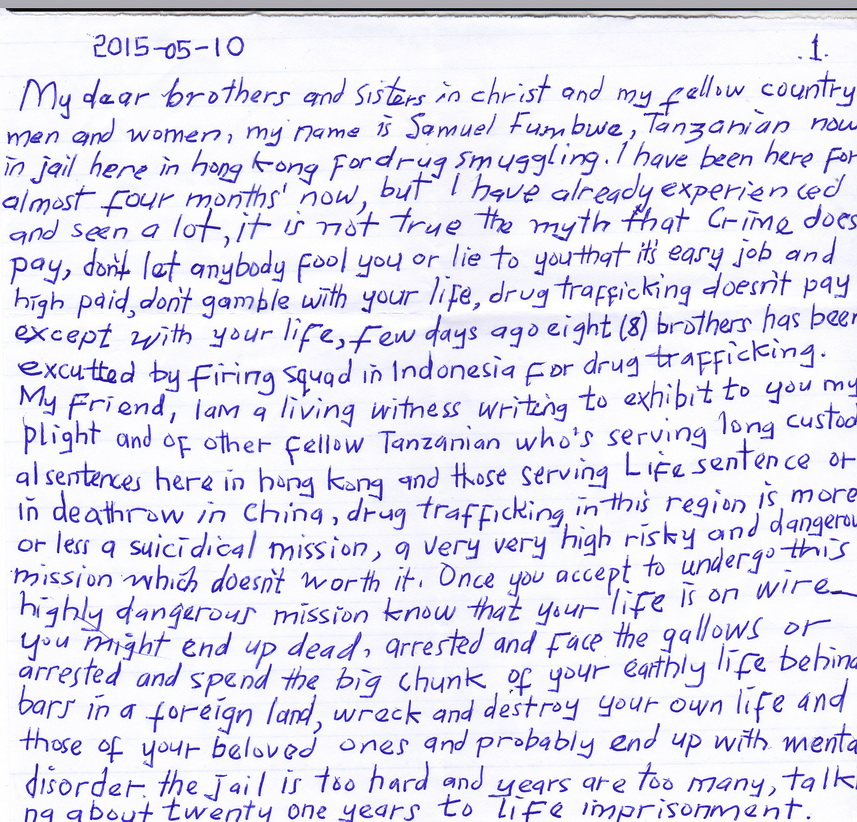 2015-05-10 .1.
My dear brothers and sisters in christ and my fellow country
men and women, my name is Samuel Fumbwe, Tanzanian now
in jail here in hong kong for drug smuggling. I have been here for
almost four months' now, but I have already experienced
and seen a lot, it is not true the myth that Crime does
pay, don't let anybody fool you or lie to you that it's easy job and
high paid, don't gamble with your life, drug trafficking doesn't pay
except with your life, few days ago eight (8) brothers has been
excutted by firing squad in Indonesia for drug trafficking.
My friend, Iam a living witness writing to exhibit to you my
plight and of other fellow Tanzanian who's serving long custod
al sentences here in hong kong and those serving Life sentence or
in deathrow in China, drug trafficking in this region is more
or less a suicidical mission, a very very high risky and dangerou
mission which doesn't worth it. Once you accept to undergo this
highly dangerous mission know that your life is on wire
you might end up dead, arrested and face the gallows or
arrested and spend the big chunk of your earthly life behind
bars in a foreign land, wreck and destroy your own life and
those of your beloved ones and probably end up with menta
disorder. the jail is too hard and years are too many, talk
ng about twenty one years to life imprisonment.